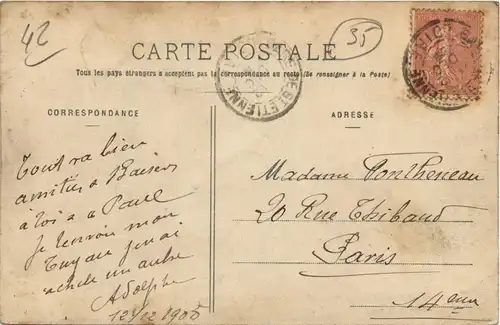 42
35
CARTE POSTALE
Tous les pays étrangers n'acceptent pas la correspondance au recto (Se renseigner à la Poste)
CORRESPONDANCE
Tout va bien
amitiés & Baisers
à toi & a Paul
Je t'envoie mon
Tuyau j'en ai
acheté un autre
Adolphe
12/12 1906
ADRESSE
Madame Pontheneau
20 Rue Thibaud
Paris
14 eme